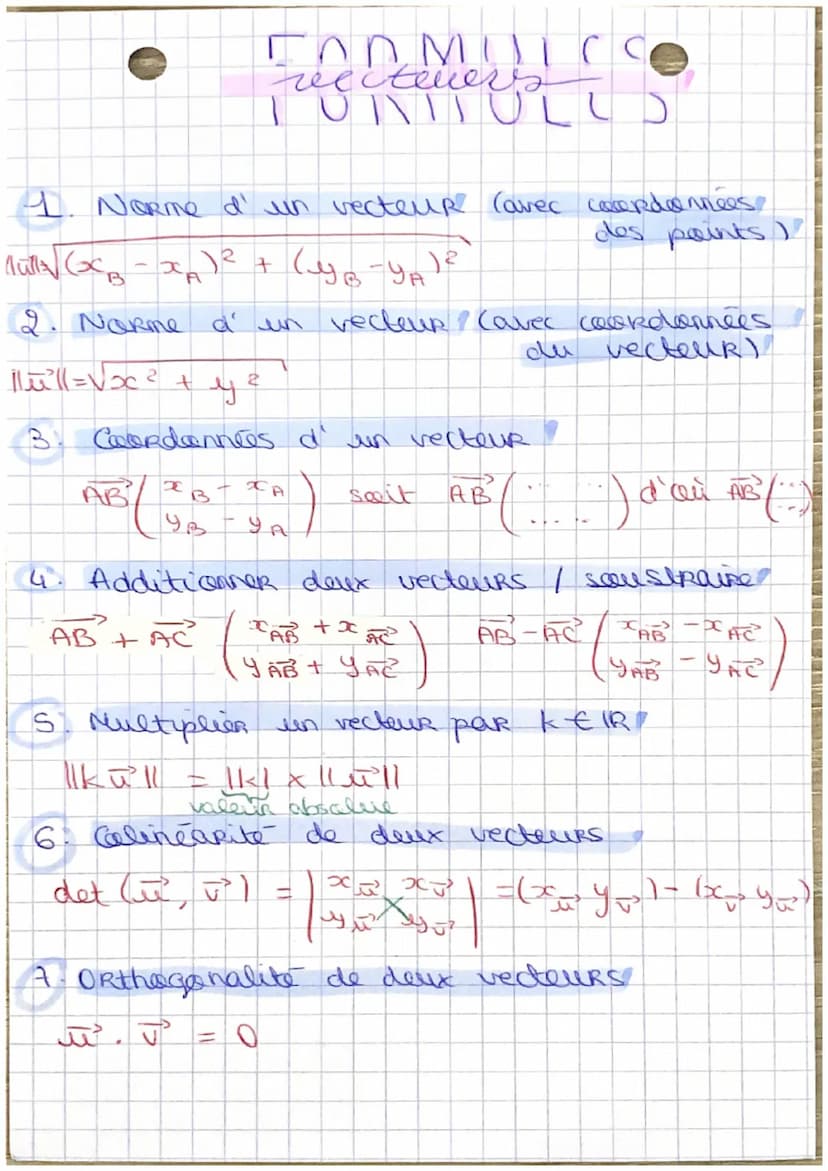 FORMULES
vecteurs
1. Norme d'un vecteur (avec coordonnées
des points)
||u⃗||=√(x_B - x_A)² + (y_B - y_A)²
2. Norme d'un vecteur (avec coordonnées
du vecteur)
||u⃗||=√x² + y²
3. Coordonnées d'un vecteur
AB⃗ (x_B - x_A / y_B - y_A) soit AB⃗ (... ... / ... ...) d'où AB⃗ (... / ...)
4. Additionner deux vecteurs / soustraire
AB⃗ + AC⃗ (x_AB⃗ + x_AC⃗ / y_AB⃗ + y_AC⃗) AB⃗ - AC⃗ (x_AB⃗ - x_AC⃗ / y_AB⃗ - y_AC⃗)
5. Multiplier un vecteur par k ∈ ℝ
||k u⃗|| = |k| × ||u⃗||
valeur absolue
6. Colinéarité de deux vecteurs
det (u⃗, v⃗) = |x_u⃗ x_v⃗ / y_u⃗ y_v⃗| = (x_u⃗ y_v⃗) - (x_v⃗ y_u⃗)
7. Orthogonalité de deux vecteurs
u⃗ . v⃗ = 0